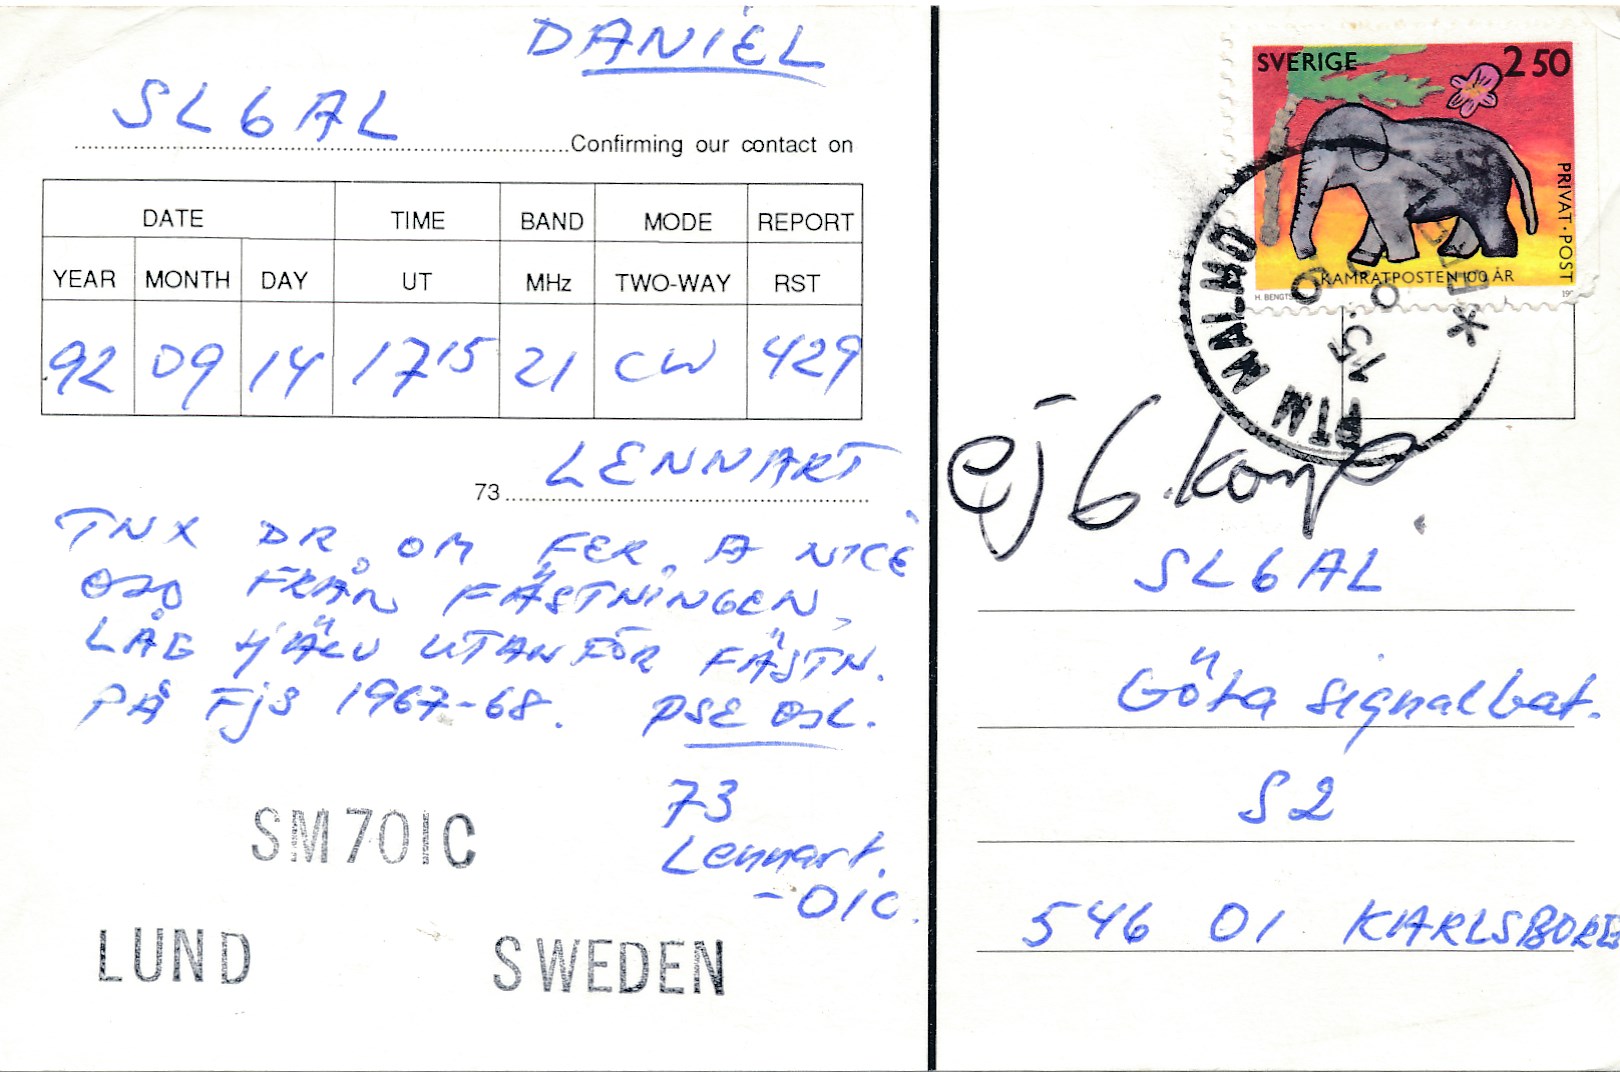 DANIEL
SL6AL
Confirming our contact on
DATE TIME BAND MODE REPORT
YEAR MONTH DAY UT MHz TWO-WAY RST
92 09 14 1715 21 CW 429
LENNART
73
TNX DR OM FER A NICE
QSO FRÅN FÄSTNINGEN.
LÅG SJÄLV UTANFÖR FÄSTN.
PÅ FJS 1967-68. PSE QSL.
73
Lennart.
-OIC.
SM7OIC
LUND SWEDEN
SVERIGE 2 50
PRIVAT·POST
KAMRATPOSTEN 100 ÅR
H. BENGTS
MALMÖ
ej 6. komp
SL6AL
Göta signalbat.
S2
546 01 KARLSBORG